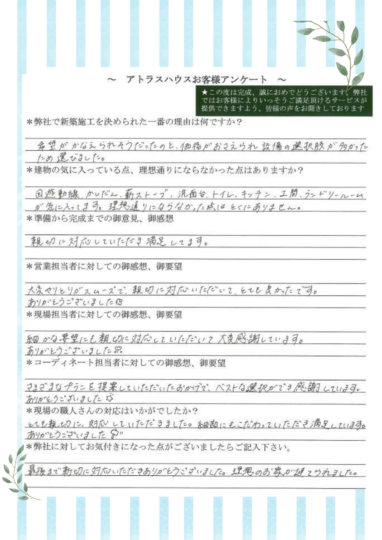 ～ アトラスハウスお客様アンケート ～
★この度は完成、誠におめでとうございます。弊社
ではお客様によりいっそうご満足頂けるサービスが
提供できますよう、皆様の声をお聞きしております
＊弊社で新築施工を決められた一番の理由は何ですか？
希望がかなえられそうだったのと、価格がおさえられ設備の選択肢が多かった
ため選びました。
＊建物の気に入っている点、理想通りにならなかった点はありますか？
回遊動線、かいだん、薪ストーブ、洗面台、トイレ、キッチン、土間、ランドリールーム
が気に入ってます。理想通りにならなかった点はとくにありません。
＊準備から完成までの御意見、御感想
親切に対応していただき満足してます。
＊営業担当者に対しての御感想、御要望
大変やりとりがスムーズで、親切に対応いただいて、とても良かったです。
ありがとうございました
＊現場担当者に対しての御感想、御要望
細かな要望にも親切に対応していただいて大変感謝しています。
ありがとうございました
＊コーディネート担当者に対しての御感想、御要望
さまざまなプランを提案していただいたおかげで、ベストな選択ができ感謝しています。
ありがとうございました
＊現場の職人さんの対応はいかがでしたか？
とても親切に、対応していただきました。細部にもこだわっていただき満足しています。
ありがとうございました
＊弊社に対してお気付きになった点がございましたらご記入下さい。
最後まで親切に対応いただきありがとうございました。理想のお家が建てられました。